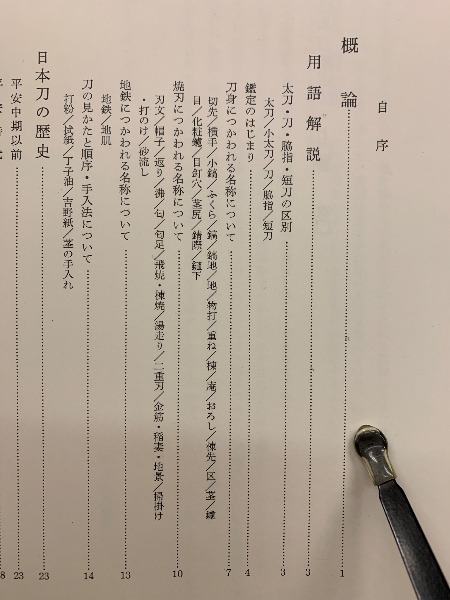 自序
概論 1
用語解説 3
太刀・刀・脇指・短刀の区別 3
太刀／小太刀／刀／脇指／短刀
鑑定のはじまり 4
刀身につかわれる名称について 7
切先／横手／小鎬／ふくら／鎬／鎬地／地／物打／重ね／棟／庵／おろし／棟先／区／茎／鑢
目／化粧鑢／目釘穴／茎尻／錆際／鎺下
焼刃につかわれる名称について 10
刃文／帽子／返り／沸／匂／匂足／飛焼・棟焼／湯走り／二重刃／金筋・稲妻・地景／掃掛け
・打のけ／砂流し
地鉄につかわれる名称について 13
地鉄／地肌
刀の見かたと順序・手入法について 14
打粉／拭紙／丁子油／吉野紙／茎の手入れ
日本刀の歴史 23
平安中期以前 23